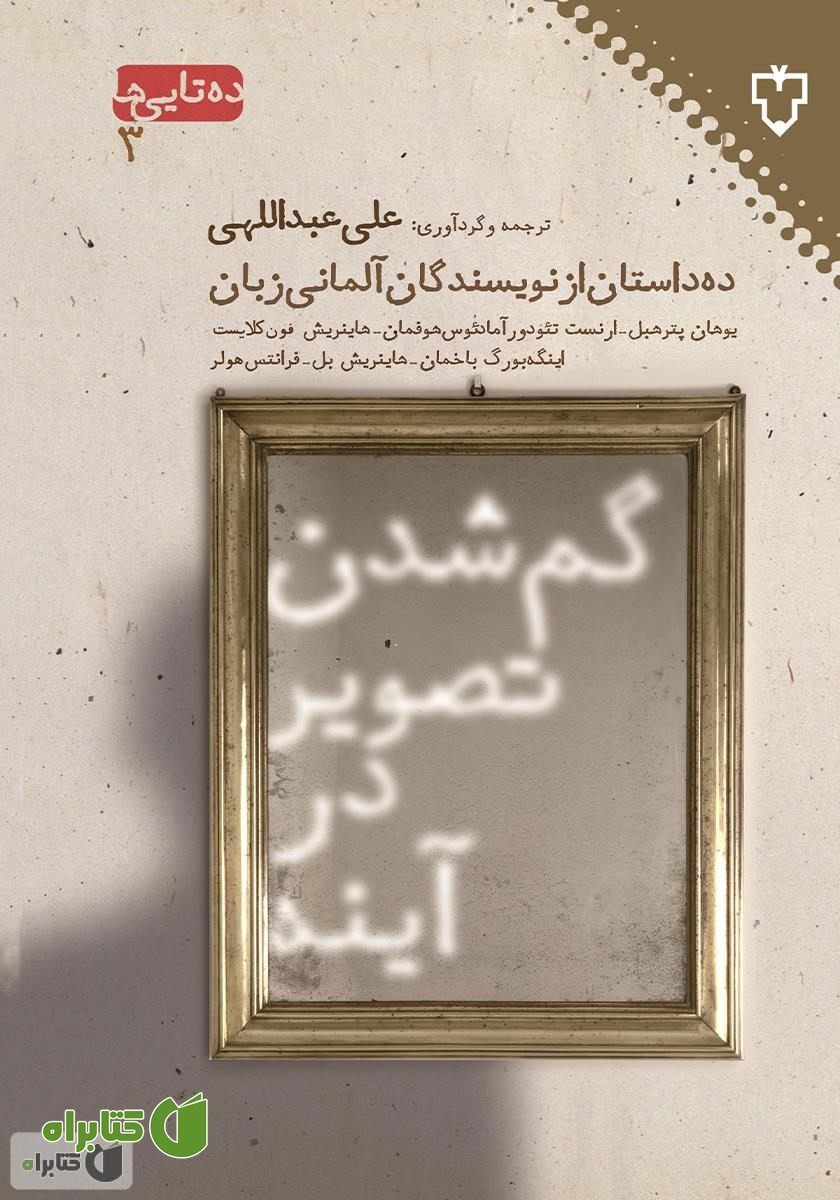 ده‌تایی‌ها
۳
ترجمه و گردآوری: علی عبداللهی
ده داستان از نویسندگان آلمانی زبان
یوهان پتر هبل - ارنست تئودور آمادئوس هوفمان - هاینریش فون کلایست
اینگه‌بورگ باخمان - هاینریش بل - فرانتس هولر
گم شدن
تصویر
در
آینه
کتابراه
کتابراه